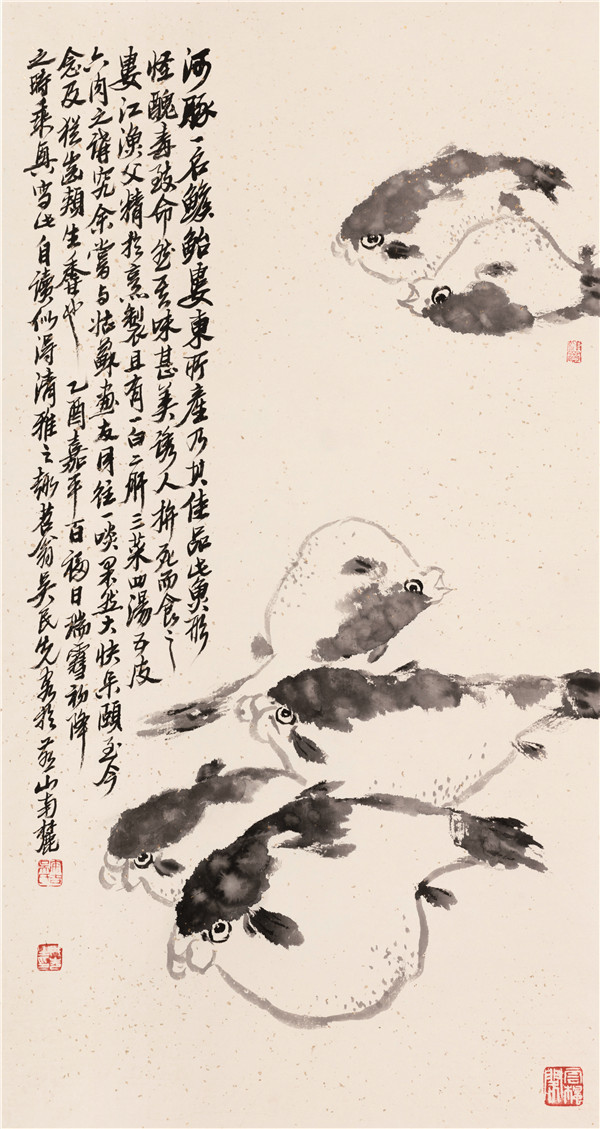 河豚一名鯸鮐婁東所產乃其佳品此魚形
怪醜毒致命然其味甚美誘人拚死而食之
婁江漁父精於烹製且有一白二肝三菜四湯五皮
六肉之講究余嘗與姑蘇畫友同往一啖果然大快朵頤至今
念及猶齒頰生香也 乙酉嘉平百福日瑞雪初降
之時乘興寫此自讀似得清雅之趣 翁吳民先畫於 山南麓